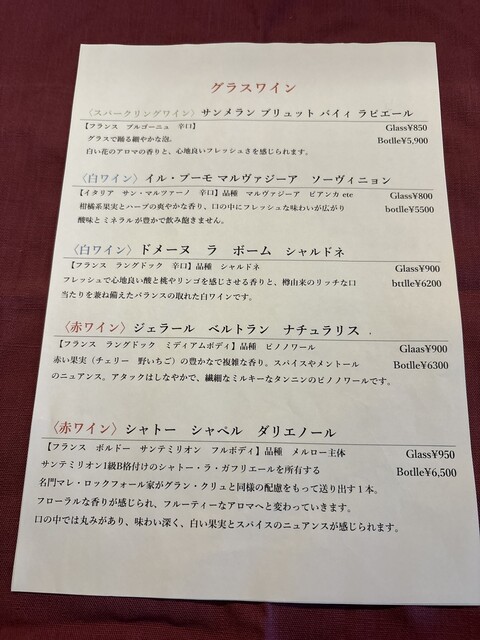 グラスワイン
〈スパークリングワイン〉サンメラン ブリュット バイィ ラピエール
【フランス ブルゴーニュ 辛口】 Glass¥850
グラスで踊る細やかな泡。 Botlle¥5,900
白い花のアロマの香りと、心地良いフレッシュさを感じられます。
〈白ワイン〉イル・プーモ マルヴァジーア ソーヴィニョン
【イタリア サン・マルツァーノ 辛口】品種 マルヴァジーア ビアンカ etc Glass¥800
柑橘系果実とハーブの爽やかな香り、口の中にフレッシュな味わいが広がり botlle¥5500
酸味と ミネラルが豊かで飲み飽きません。
〈白ワイン〉ドメーヌ ラ ボーム シャルドネ
【フランス ラングドック 辛口】品種 シャルドネ Glass¥900
フレッシュで心地良い酸と桃やリンゴを感じさせる香りと、樽由来のリッチな口 bttlle¥6200
当たりを兼ね備えたバランスの取れた白ワインです。
〈赤ワイン〉ジェラール ベルトラン ナチュラリス .
【フランス ラングドック ミディアムボディ】品種 ピノノワール Glaas¥900
赤い果実（チェリー 野いちご）の豊かで複雑な香り。スパイスやメントール Botlle¥6300
のニュアンス。アタックはしなやかで、繊細なミルキーなタンニンのピノノワールです。
〈赤ワイン〉シャトー シャペル ダリエノール
【フランス ボルドー サンテミリオン フルボディ】品種 メルロー主体 Glass¥950
サンテミリオン1級B格付けのシャトー・ラ・ガフリエールを所有する Botlle¥6,500
名門マレ・ロックフォール家がグラン・クリュと同様の配慮をもって送り出す１本。
フローラルな香りが感じられ、フルーティーなアロマへと変わっていきます。
口の中では丸みがあり、味わい深く、白い果実とスパイスのニュアンスが感じられます。